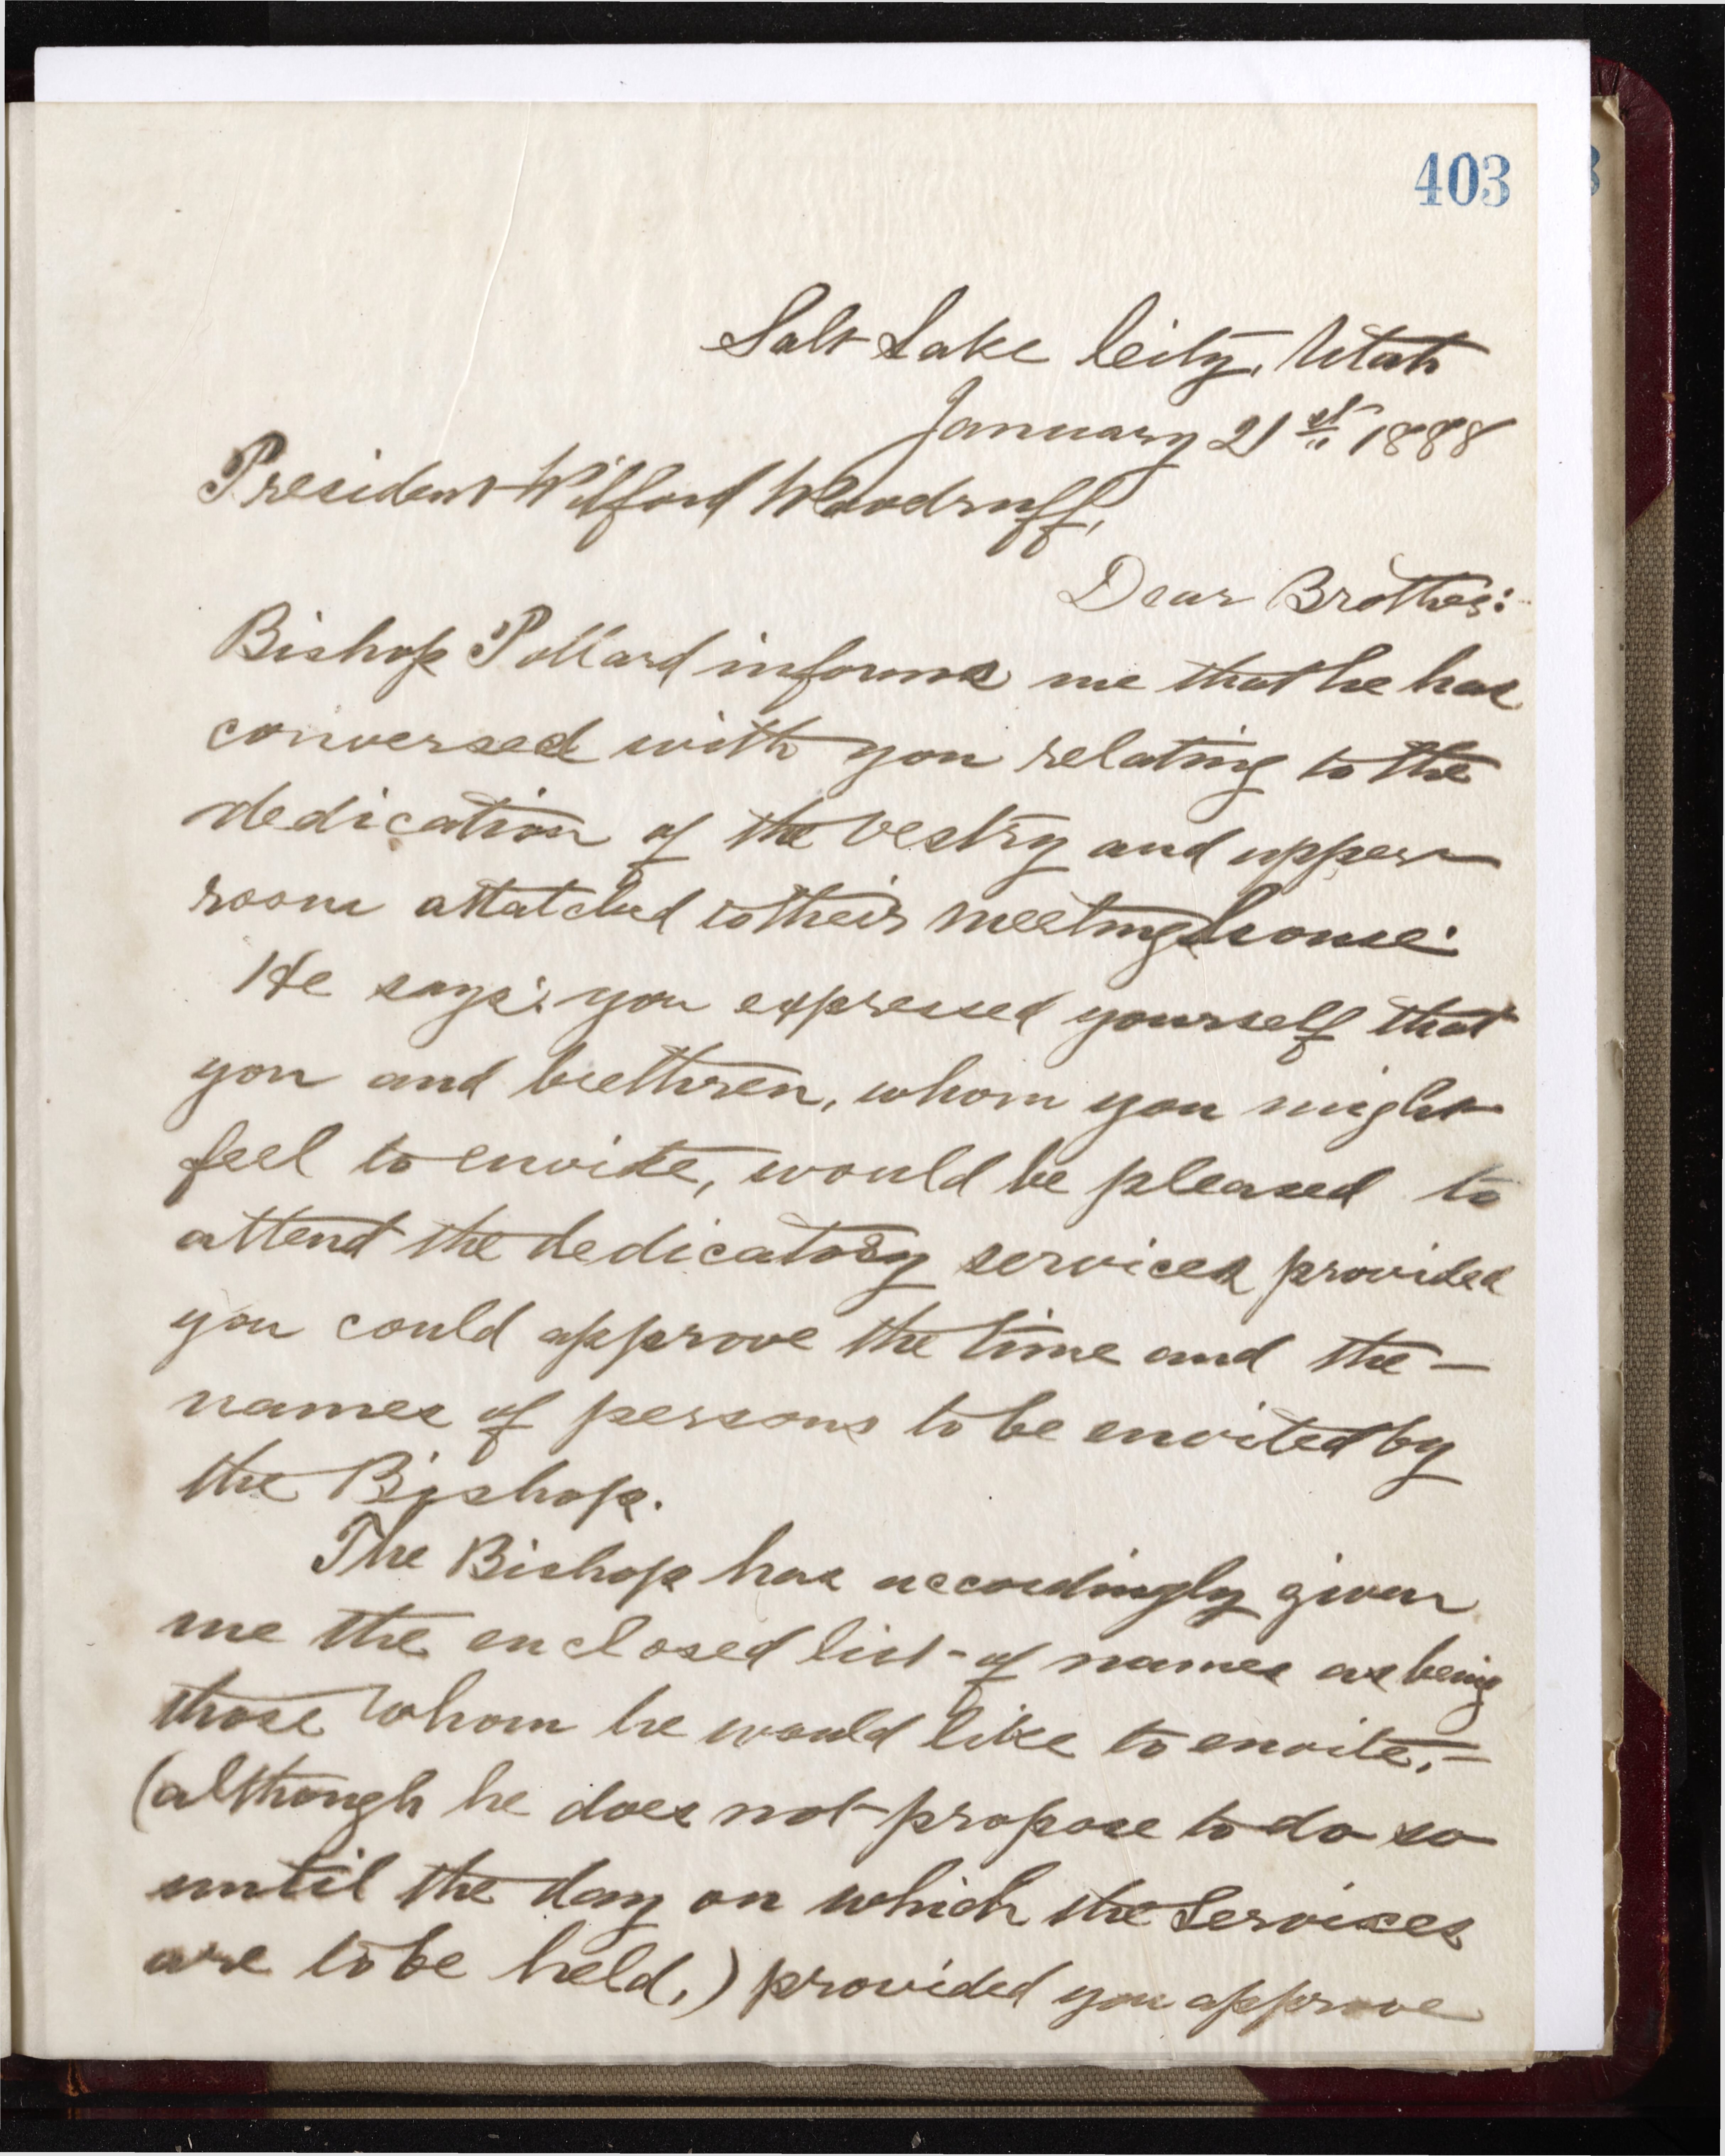 403
Salt Lake City, Utah
January 21st 1888
President Wilford Woodruff,
Dear Brother:
Bishop Pollard informs me that he has
conversed with you relating to the
dedication of the vestry and upper
room attatched to their meeting house.
He says: you expressed yourself that
you and brethren, whom you might
feel to envite, would be pleased to
attend the dedicatory services provided
you could approve the time and the —
names of persons to be envited by
the Bishop.
The Bishop has accordingly given
me the enclosed list of names as being
those whom he would like to envite, —
(although he does not propose to do so
until the day on which the services
are to be held,) provided you approve